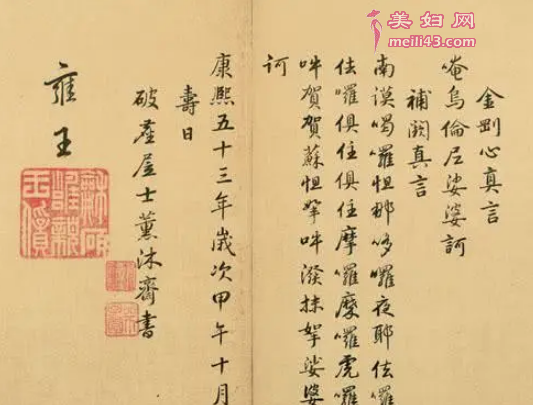 美妇网
meili43.com
金剛心真言
唵烏倫尼娑婆訶
補闕真言
南謨喝囉怛那哆囉夜耶佉囉
佉囉俱住俱住摩囉摩囉虎囉
吽賀賀蘇怛拏吽潑抹拏娑婆
訶
康熙五十三年歲次甲午十月
壽日
破塵居士薰沐齋書
雍王